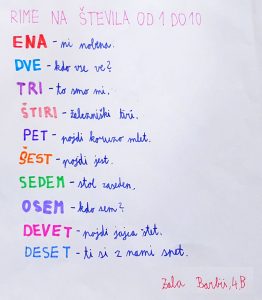 RIME NA ŠTEVILA OD 1 DO 10
ENA - ni nobena.
DVE - kdo vse ve?
TRI - to smo mi.
ŠTIRI - železniški tiri.
PET - pojdi koruzo mlet.
ŠEST - pojdi jest.
SEDEM - stol zaseden.
OSEM - kdo sem?
DEVET - pojdi jajca štet.
DESET - ti si z nami spet.
Zala Barbir, 4.B